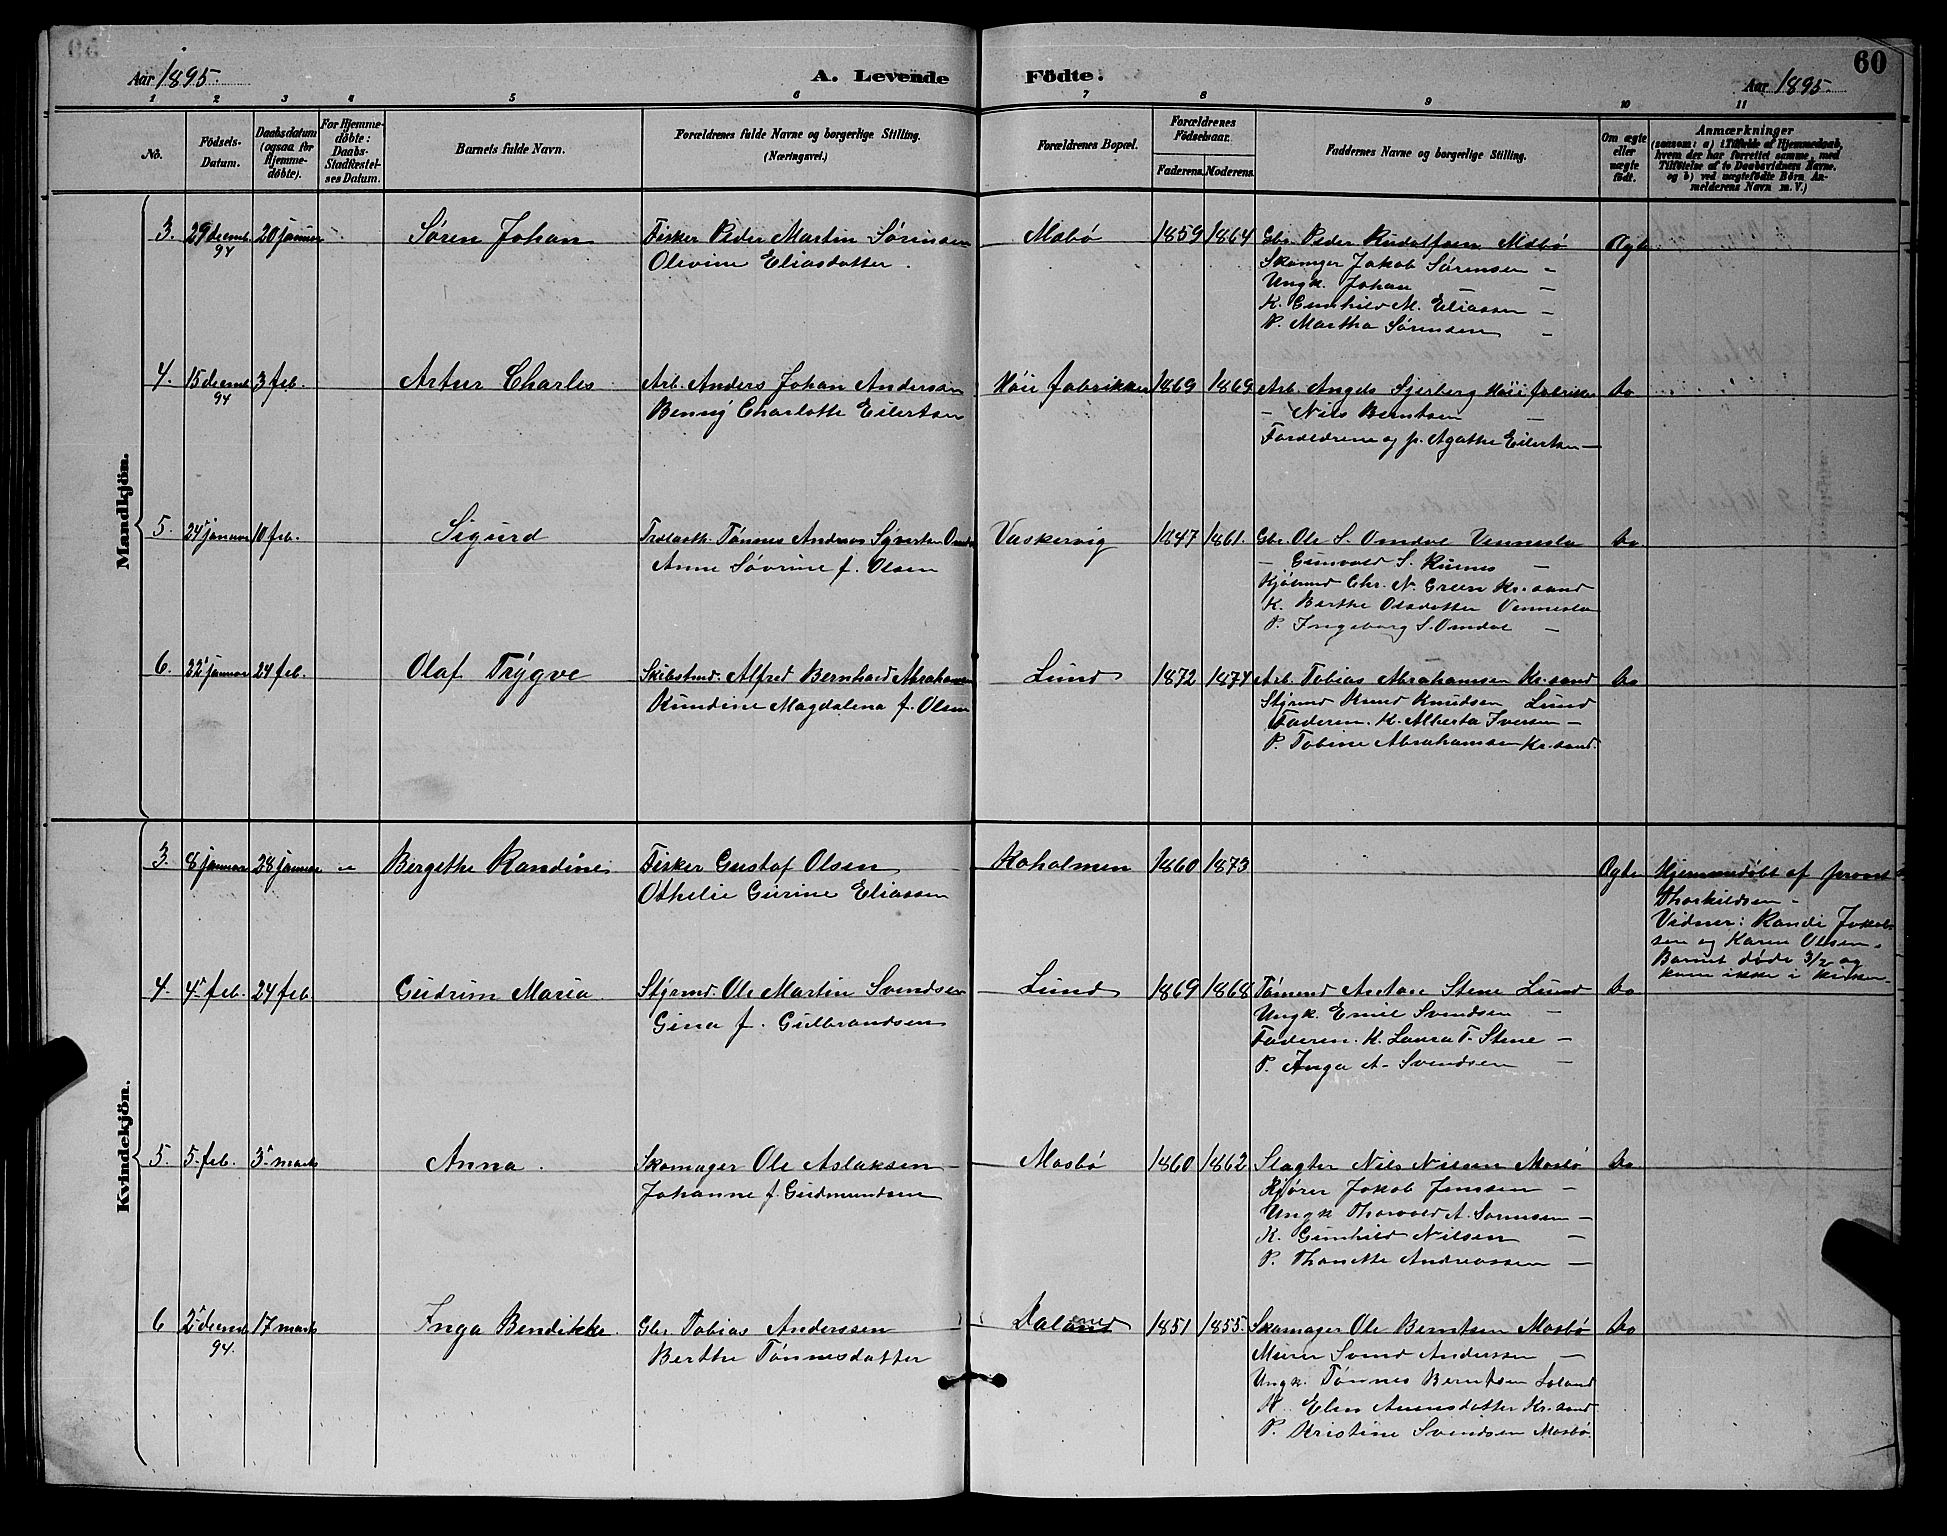 60
Aar 1895.
A. Levende Födte.
Aar 1895.
1 2 3 4 5 6 7 8 9 10 11
No.
Födsels-Datum.
Daabsdatum (ogsaa for Hjemme-döbte).
For Hjemme-döbte: Daabs-Stadfæstel-ses Datum.
Barnets fulde Navn.
Forældrenes fulde Navne og borgerlige Stilling. (Næringsvei.)
Forældrenes Bopæl.
Forældrenes Födselsaar.
Faderens. Moderens.
Faddernes Navne og borgerlige Stilling.
Om ægte eller uægte födt.
Anmærkninger
(saasom: a) i Tilfælde af Hjemmedaab, hvem der har forrettet samme, med Tilföielse af to Daabsvidners Navne, og b) ved uægtefödte Börn An-melderens Navn m. V.)
Mandkjön.
3. 29 decemb 94 20 januar Søren Johan Fisker Peder Martin Sørensen Mosbø 1859 1864 Gbr. Peder Rudolfsen Mosbø Ægte
Olevine Eliasdatter. Skomager Jakob Sørensen -
Ungk. Johan - -
K. Gunhild M. Eliassen -
P. Martha Sørensen -
4. 15 decemb 94 3 feb. Artur Charles Arb. Anders Johan Andersen Høie fabrikker 1869 1869 Arb. Angel Sjerberg Høie fabrikker do
Benny Charlotte Eilertsen - Nils Berntsen -
Forældrene og p. Agathe Eilertsen -
5. 24 januar 10 feb. Sigurd Tønnes Andreas Syvertsen Omdal Vaskervig 1847 1861. Gbr. Ole S. Omdal Vennesla do
Anne Sövrine f. Olsen - Gunvald S. -
Chr. N. Green Kr.sand
K. Berthe Olsdatter Vennesla
P. Ingeborg S. Omdal -
6. 22 januar 24 feb. Olaf Trygve Skibstmd. Alfred Bernhard Abrahamsen Lund 1872 1874 Arb. Tobias Abrahamsen Kr.sand do
Kundine Magdalena f. Olsen Styrmd Knud Knudsen Lund
Faderen. K. Alberta Iversen -
P. Tobine Abrahamsen Kr.sand.
Kvindekjön.
3. 8 januar 28 januar - Bergethe Randine Fisker Gustaf Olsen Roholmen 1860 1873 Ægte Hjemmedøbt af provst
Othelie Gurine Eliassen Thorkildsen -
Vidner: Randi Jakob-
sen og Karen Olsen.
Barnet døde 3/2 og
kom ikke i kirken
4. 4 feb. 24 feb Gudrun Maria Styrmd. Ole Martin Svendsen Lund 1869 1868 Tømmd Anton Stene Lund do
Gina f. Gulbrandsen Ungk. Emil Svendsen -
Faderen. K. Laura T. Stene -
P. Inga A. Svendsen -
5. 5 feb. 3 marts Anna. Skomager Ole Aslaksen Mosbø 1860 1862 Slagter Nils Nilsen Mosbø do
Johanne f. Gudmundsen Kjører Jakob Jenssen -
Ungk Thorvald A. Sørensen -
K. Gunhild Nilsen -
P. Thonette Andreassen -
6 2 decemb 94. 17 marts Inga Bendikke. Gbr. Tobias Anderssen Daland 1851 1855. Skomager Ole Berntsen Mosbø do
Berthe Tønnesdatter Murer Svend Anderssen -
Ungk. Tønnes Berntsen Loland
K. Elen Kr.sand
P. Kristine Svendsen Mosbø.